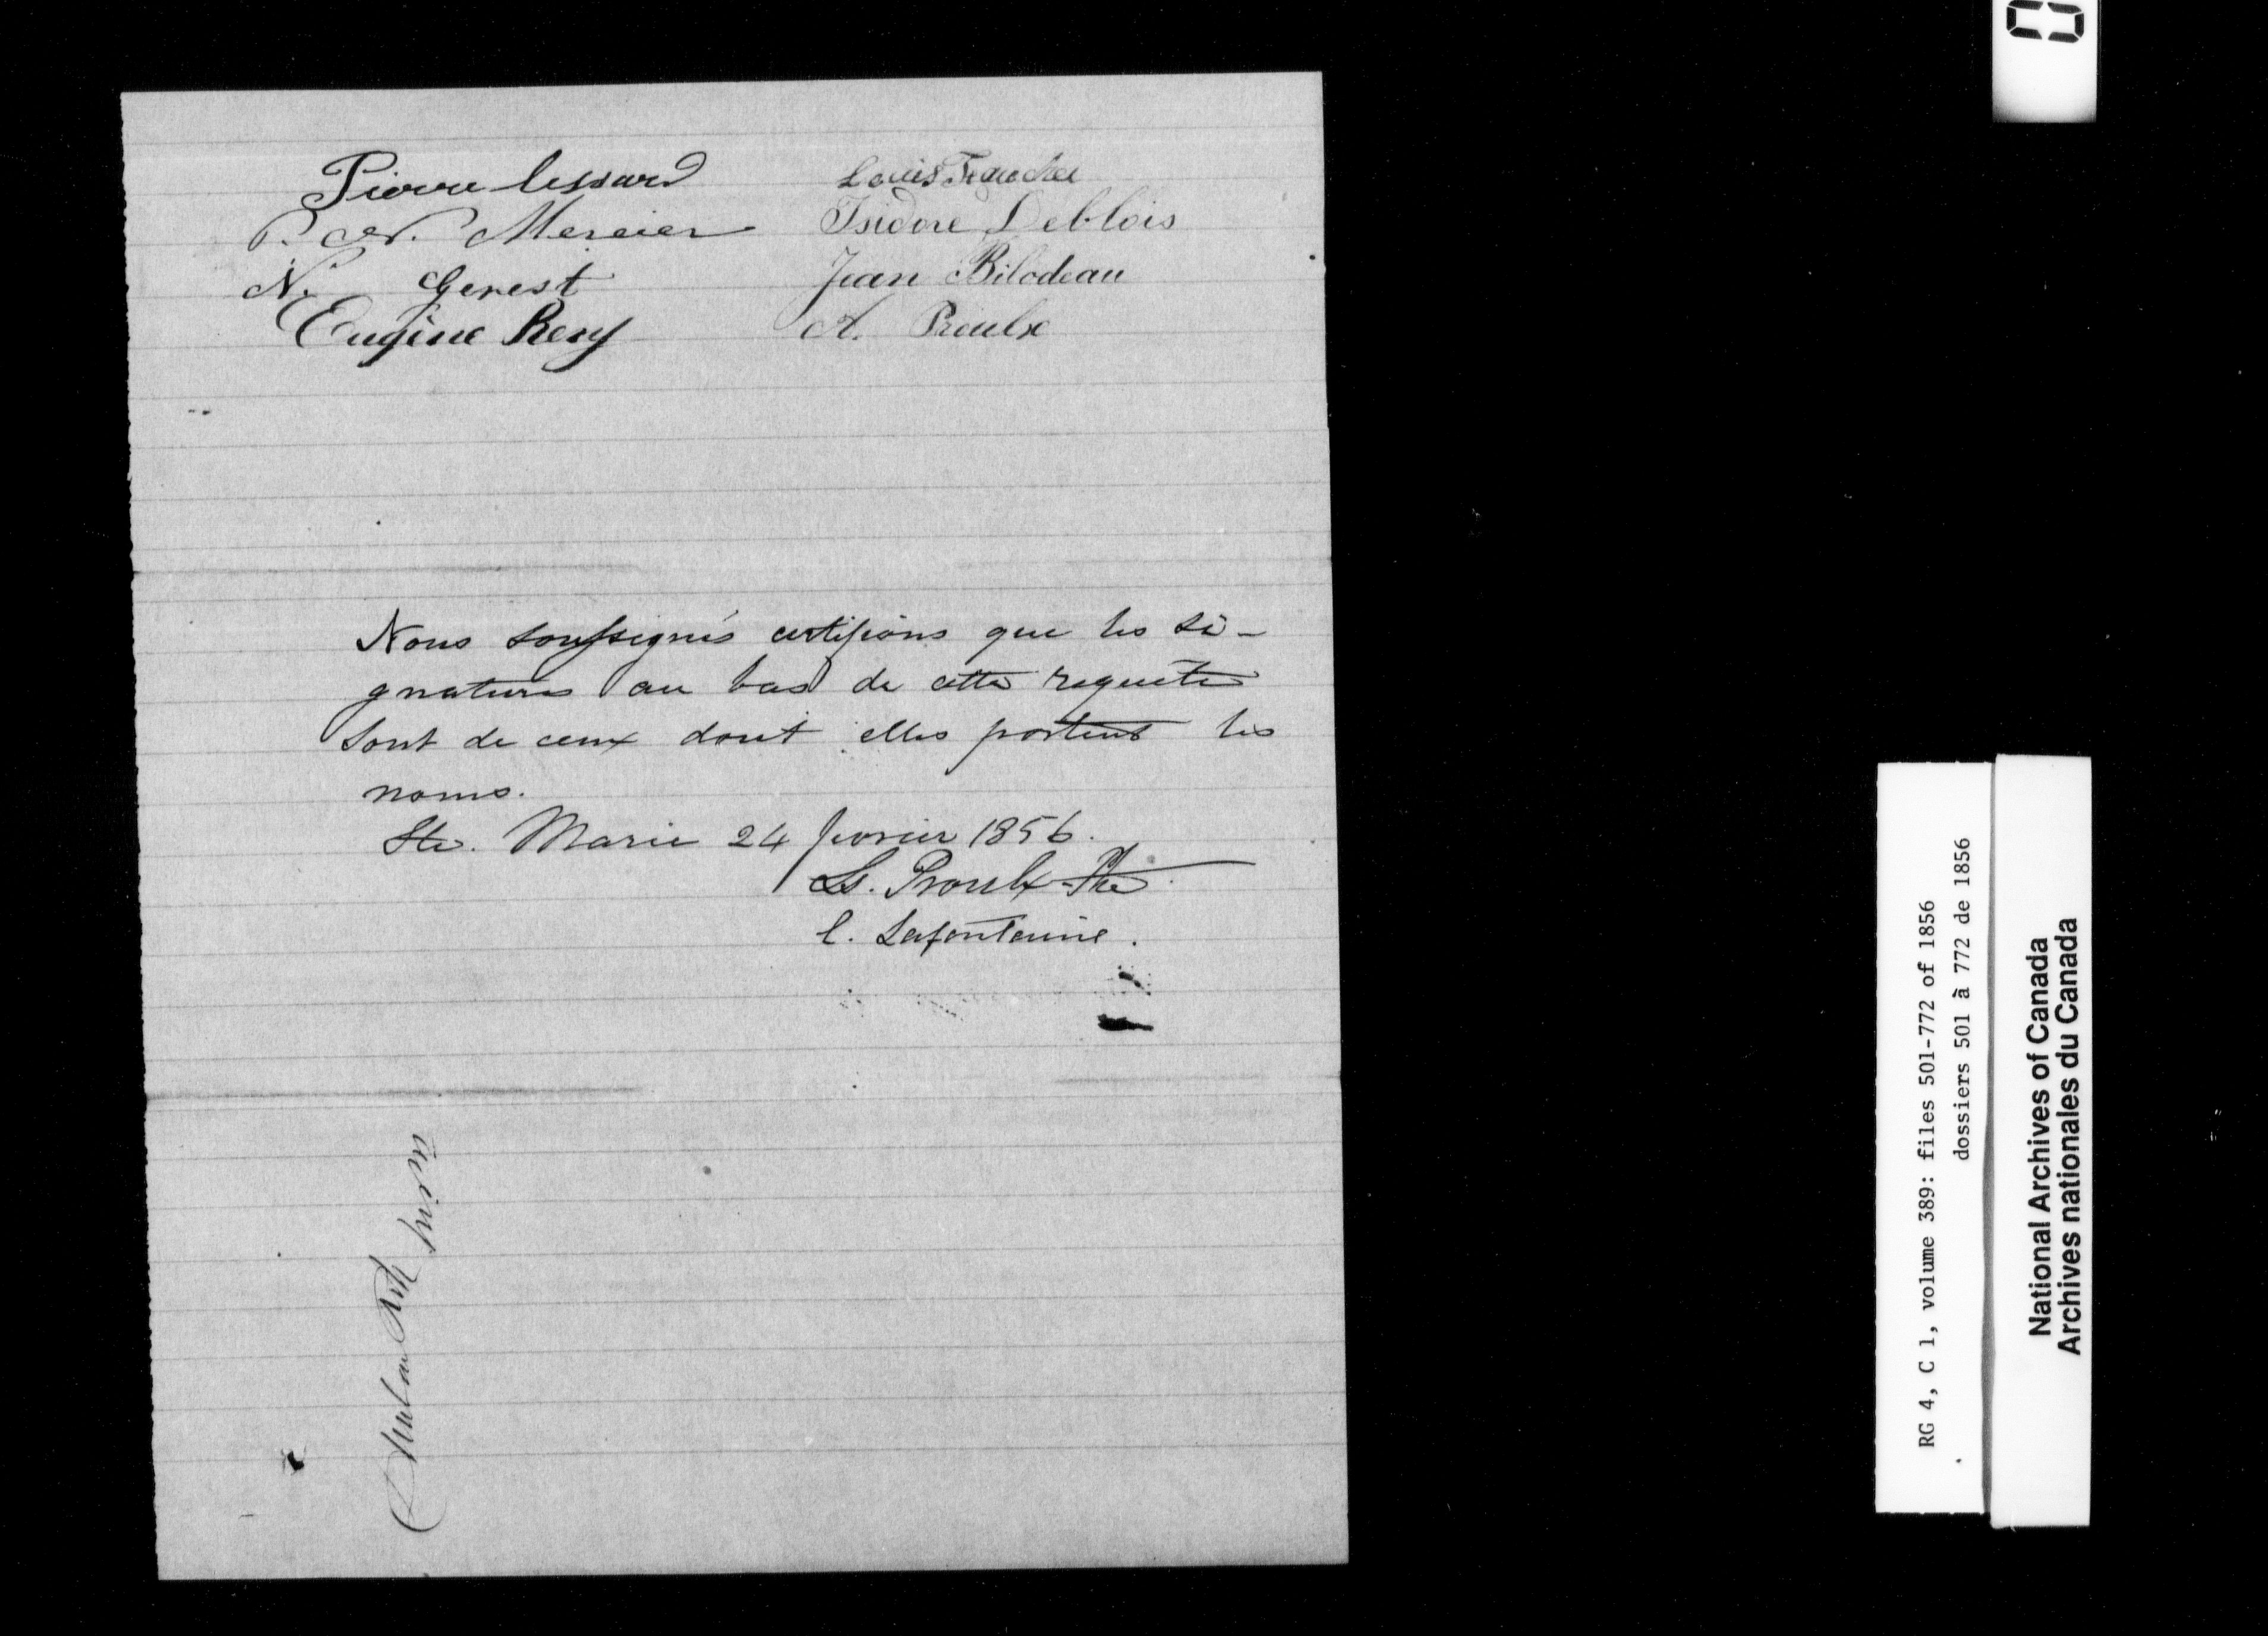 Pierre Lessard
P. Mercier
N. Gerest
Eugène Remy
Louis Faucher
Isidore Deblois
Jean Bilodeau
A. Proulx
Nous soussignés certifions que les si-
gnatures au bas de cette requête
sont de ceux dont elles portent les
noms.
Ste. Marie 24 fevrier 1856.
Ls. Proulx Ptre
l. Lafontaine.
RG 4, C 1, volume 389: files 501-772 of 1856
dossiers 501 à 772 de 1856
National Archives of Canada
Archives nationales du Canada